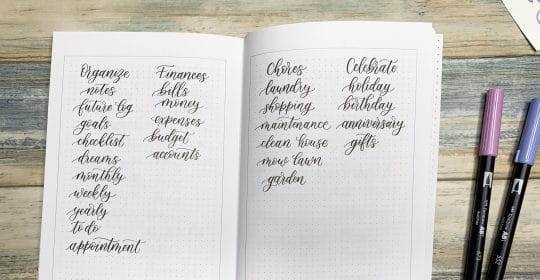 Organize
notes
future log
goals
checklist
dreams
monthly
weekly
yearly
to do
appointment
Finances
bills
money
expenses
budget
accounts
Chores
laundry
shopping
maintenance
clean house
mow lawn
garden
Celebrate
holiday
birthday
anniversary
gifts